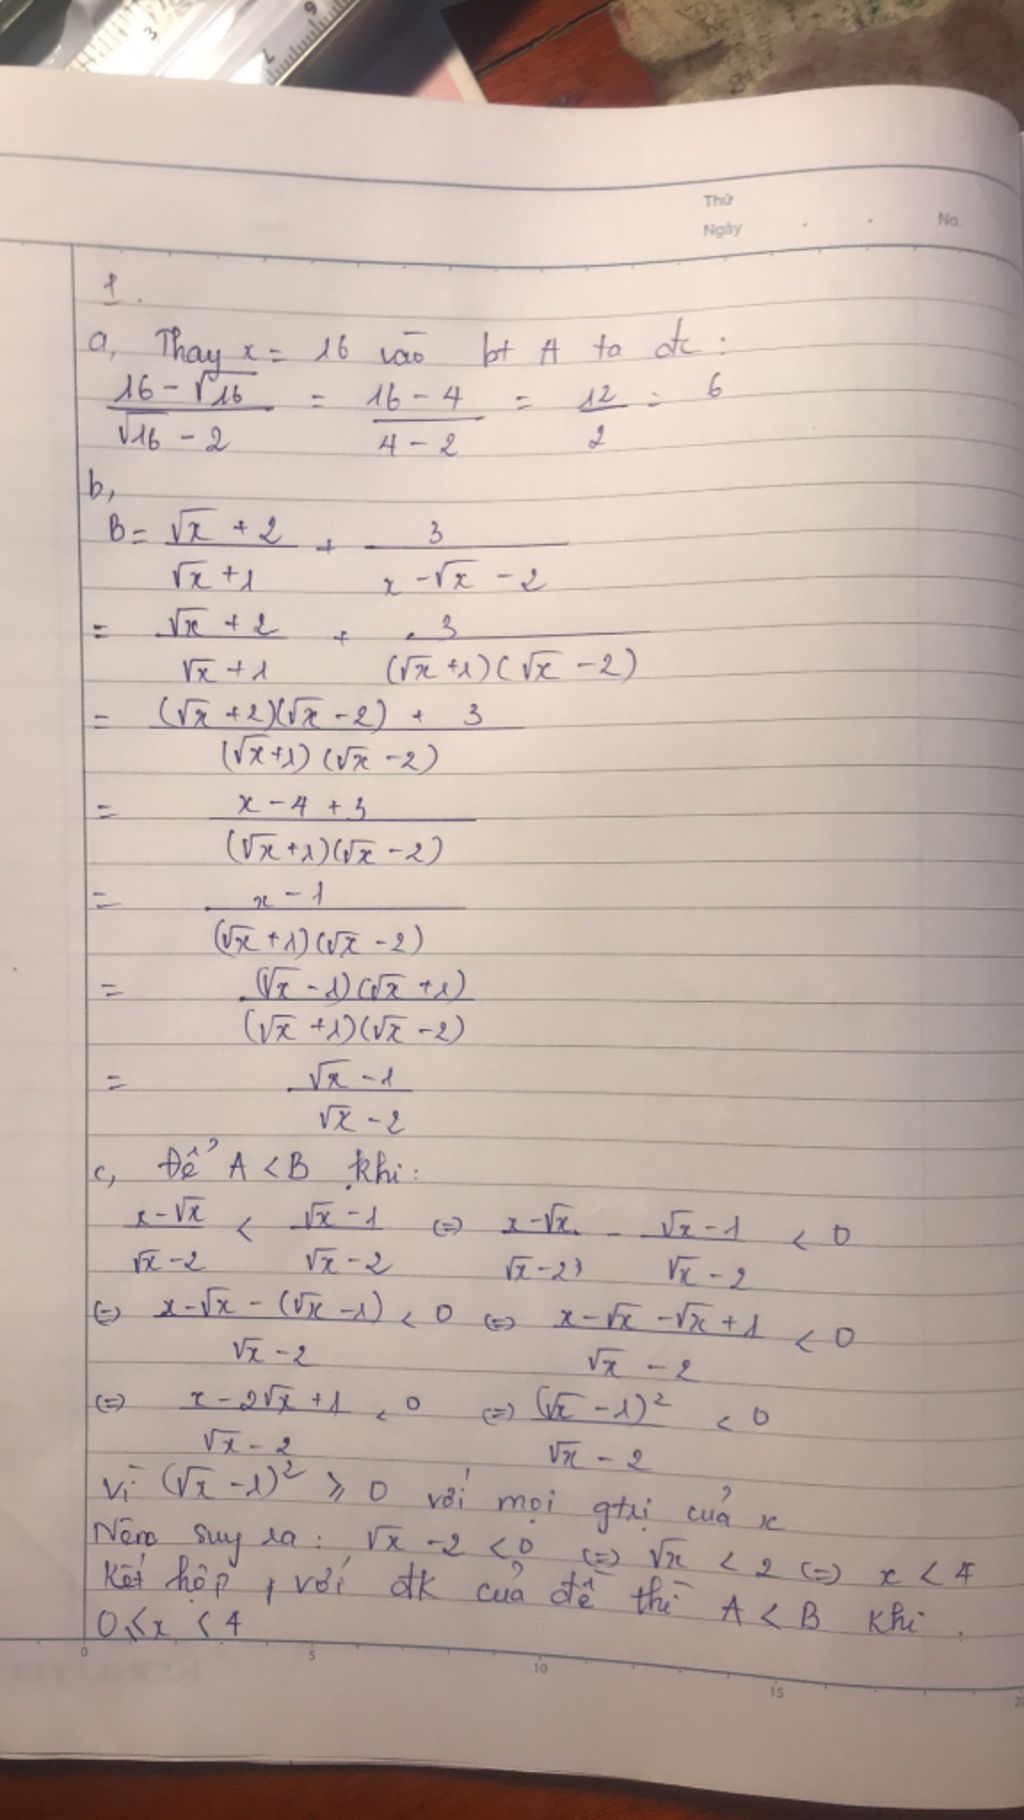 Thứ
Ngày
No.
1.
a, Thay x = 16 vào bt A ta đc :
16 - √16 / √16 - 2 = 16 - 4 / 4 - 2 = 12 / 2 = 6
b,
B = √x + 2 / √x + 1 + 3 / x - √x - 2
= √x + 2 / √x + 1 + 3 / (√x + 1)(√x - 2)
= (√x + 2)(√x - 2) + 3 / (√x + 1)(√x - 2)
= x - 4 + 3 / (√x + 1)(√x - 2)
= x - 1 / (√x + 1)(√x - 2)
= (√x - 1)(√x + 1) / (√x + 1)(√x - 2)
= √x - 1 / √x - 2
c, Để A < B khi :
x - √x / √x - 2 < √x - 1 / √x - 2 (=) x - √x / √x - 2 - √x - 1 / √x - 2 < 0
(=) x - √x - (√x - 1) / √x - 2 < 0 (=) x - √x - √x + 1 / √x - 2 < 0
(=) x - 2√x + 1 / √x - 2 < 0 (=) (√x - 1)² / √x - 2 < 0
Vì (√x - 1)² ⩾ 0 với mọi gtrị của x
Nên suy ra : √x - 2 < 0 (=) √x < 2 (=) x < 4
Kết hợp, với đk của đề thì A < B khi .
0 ⩽ x < 4
0 5 10 15